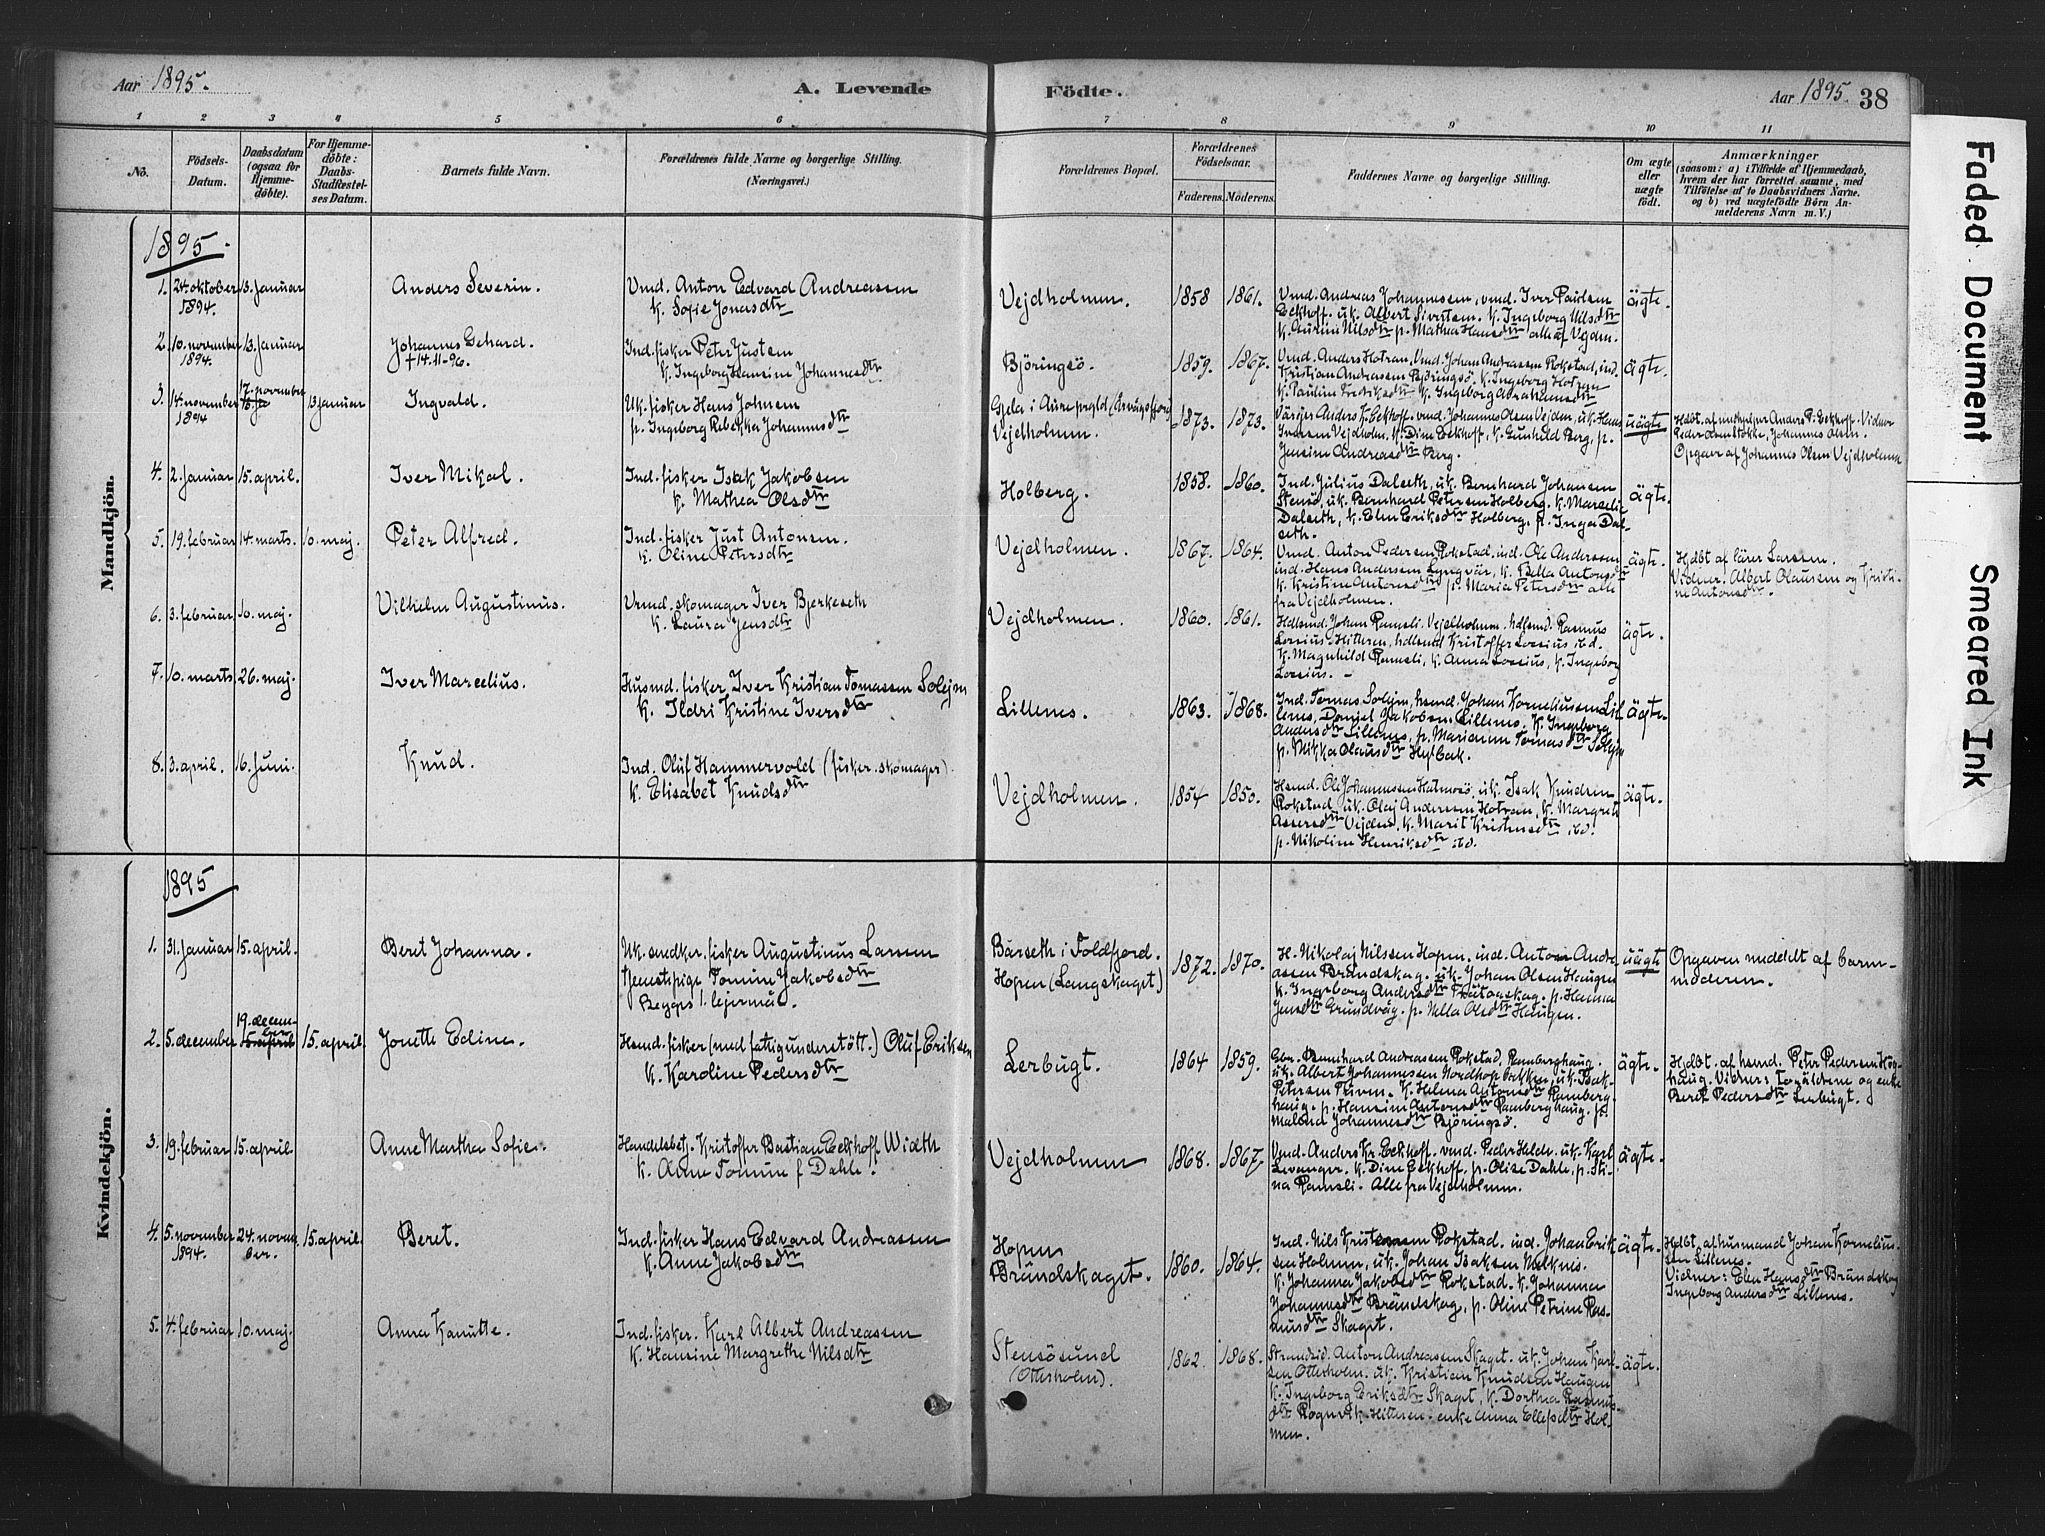 Aar 1895.
A. Levende
Födte.
Aar 1895. 38
1 2 3 4 5 6 7 8 9 10 11
No.
Födsels-
Datum.
Daabsdatum
(ogsaa for
Hjemme-
döbte).
For Hjemme-
döbte:
Daabs-
Stadfæstel-
ses Datum.
Barnets fulde Navn.
Forældrenes fulde Navne og borgerlige Stilling.
(Næringsvei.)
Forældrenes Bopæl.
Forældrenes
Födselsaar.
Faderens. Moderens.
Faddernes Navne og borgerlige Stilling.
Om ægte
eller
uægte
födt.
Anmærkninger
(saasom: a) i Tilfælde af Hjemmedaab,
hvem der har forrettet samme, med
Tilföielse af to Daabsvidners Navne.
og b) ved uægtefödte Börn An-
melderens Navn m. V.)
Mandkjön.
1895.
1. 24. oktober 1894. 13. Januar
Anders Severin.
Vmd. Anton Edvard Andreassen
k. Sofie Jonasdtr
Vejdholmen.
1858 1861.
Vmd. Andreas Johannessen, vmd. Iver Paulsen
Eckhoff. uk. Albert Sivertsen. k. Ingeborg Nilsdtr
ägte.
2. 10. november 1894. 13. Januar
Johannes Gehard.
† 14.11-96.
Ind. fisker Peter Justsen
k. Ingeborg Hansine Johannesdtr
Björingsö.
1859. 1867.
Vmd. Anders Hotran, Vmd. Johan Andreassen Rokstad, ind.
Kristian Andreassen Björingsö. k. Ingeborg Hotran
k. Pauline Fredriksdtr k. Ingeborg Abrahamsdtr
ägte.
3. 14. november 1894 17. november 13 januar
Ingvald.
Uk. fisker Hans Johnsen
p. Ingeborg Rebekka Johannesdtr
Gjela i Aure prgld (Årvågsfjord)
Vejdholmen.
1873. 1873.
Värger Anders K. Eckhoff. vmd. Johannes Olsen Vejden, uk. Hans
Iversen Vejdholm, k. Dina Eckhoff, k. Gunhild Berg, p.
Jensine Andreasdtr Berg.
uägte
Opgaver af Johannes Olsen Vejdholmen
4. 2. Januar 15. april.
Iver Mikal.
Ind. fisker Isak Jakobsen
k. Mathea Olsdtr
Holberg.
1858. 1860.
Ind. Julius Dalseth, uk. Bernhard Johansen
Stensö, uk. Bernhard Petersen Holberg. k. Marcelie
Dalseth, k. Elen Eriksdtr Holberg, p. Inga Dal-
seth.
ägte.
5. 19. februar 14. marts. 10. maj.
Peter Alfred.
Ind. fisker Just Antonsen.
k. Oline Petersdtr
Vejdholmen.
1867. 1864.
Vmd. Anton Pedersen Rokstad. ind. Ole Anderssen
ind. Hans Andersen Lyngvär, k. Bella Antonsdtr
k. Kristine Antonsdtr p. Maria Petersdtr alle
fra Vejdholmen.
ägte.
Hjdbt af lärer Larsen.
Vidner: Albert Olaussen og Kristi-
ne Antonsdtr.
6. 3. februar 10. maj.
Vilhelm Augustinus.
Vrmd. skomager Iver Bjerkeseth
k. Laura Jensdtr
Vejdholmen.
1860. 1861.
Hdlsmd. Johan Ramsli. Vejdholmen. hdlsmd. Rasmus
Lossius Hitteren, hdlsmd Kristoffer Lossius ibd.
k. Magnhild Ramsli, k. Anna Lossius, k. Ingeborg
Lossius. –
ägte.
7. 10. marts. 26. maj.
Iver Marcelius.
Husmd. fisker Iver Kristian Tomassen Solejm
k. Ildri Kristine Iversdtr
Lillenes.
1863. 1868.
Ind. Tomas Solejm, husmd. Johan Korneliussen Lil-
lenes, Daniel Jakobsen Lillenes, k. Ingeborg
Andersdtr Lillenes, p. Marianne Tomasdtr Solejm
p. Mikka Olausdtr Hesbak.
ägte.
8. 3. april. 16. Juni.
Knud.
Ind. Oluf Hammervold (fisker. skomager).
k. Elisabet Knudsdtr
Vejdholmen.
1854 1850.
Hsmd. Ole Johannessen Halmosö. uk. Isak Knudsen
Rokstad. uk. Olaf Andersen Hotran, k. Margrete
Assersdtr Vejden, k. Marit Kristensdtr ibd.
p. Nikoline Henriksdtr ibd.
ägte.
Kvindekjön.
1895
1. 31. Januar 15. april.
Beret Johanna.
Uk. snedker, fisker Augustinus Larsen
Tjenestepige Tomine Jakobsdtr
Begges 1. lejermål.
Bårseth i Foldfjord.
Hopen (Langskaget)
1872. 1870.
H. Nikolaj Nilssen Hopen, ind. Anton Andre-
assen Brändskag. uk. Johan Olsen Haugen
k. Ingeborg Andersdtr Trätanskag. p. Hanna
Jensdtr Grundvåg. p. Nella Olsdtr Haugen.
uägte
Opgaven meddelt af barne-
moderen.
2. 5. december 19. decem-
ber 15. april.
Jonette Edine.
Hsmd. fisker (med fattigunderstött.) Oluf Eriksen
k. Karoline Pedersdtr
Lerbugt.
1864 1859.
Gbr. Bernhard Andreassen Rokstad, Ramberghaug.
uk. Albert Johannessen Nordhopsbakken, uk. Isak
Petersen Teiven. k. Helena Antonsdtr Ramberg-
haug. p. Hansine Antonsdtr Ramberghaug. p.
Malena Johannesdtr Björingsö.
ägte.
Hjdbt. af hsmd. Peter Pedersen Kors-
haug. Vidner: Foräldrene og enke
Beret Pedersdtr Lerbugt.
3. 19. februar 15. april.
Anne Martha Sofie.
Handelsbetj. Kristoffer Bastian Eckhoff Width
k. Anne Tomine f. Dahle.
Vejdholmen
1868. 1867.
Vmd. Anders Kr. Eckhoff. vmd. Peder Helde. uk. Karl
Levanger. k. Dina Eckhoff. p. Olise Dahle, p. Sti-
na Ramsli. Alle fra Vejdholmen.
ägte.
4. 5. november 1894. 24. novem-
ber. 15. april.
Beret.
Ind. fisker Hans Edvard Andreassen
k. Anne Jakobsdtr
Hopen
Brändskaget.
1860. 1864.
Ind. Nils Kristensen Rokstad. ind. Johan Erik-
sen Holmen, uk. Johan Isaksen Melknes.
k. Johanna Jakobsdtr Rokstad. k. Johanna
Johannesdtr Brändskag, p. Oline Petrine Ras-
musdtr Skaget.
ägte.
Hjdbt. af husmand Johan Kornelius-
sen Lillenes.
Vidner: Elen Hansdtr Brändskag
Ingeborg Andersdtr Lillenes.
5. 4. februar 10. maj.
Anna Kanutte.
Ind. fisker. Karl Albert Andreassen
k. Hansine Margrethe Nilsdtr
Stensösund
(Otterholm).
1862. 1868.
Strandsid. Anton Andreassen Skaget. uk. Johan Karl-
sen Otterholm. uk. Kristian Knudsen Haugen
k. Ingeborg Eriksdtr Skaget, k. Dorthea Rasmus-
dtr Rognvik Hitteren. enke Anna Ellefsdtr Hol-
men.
ägte.
Faded Document Smeared Ink